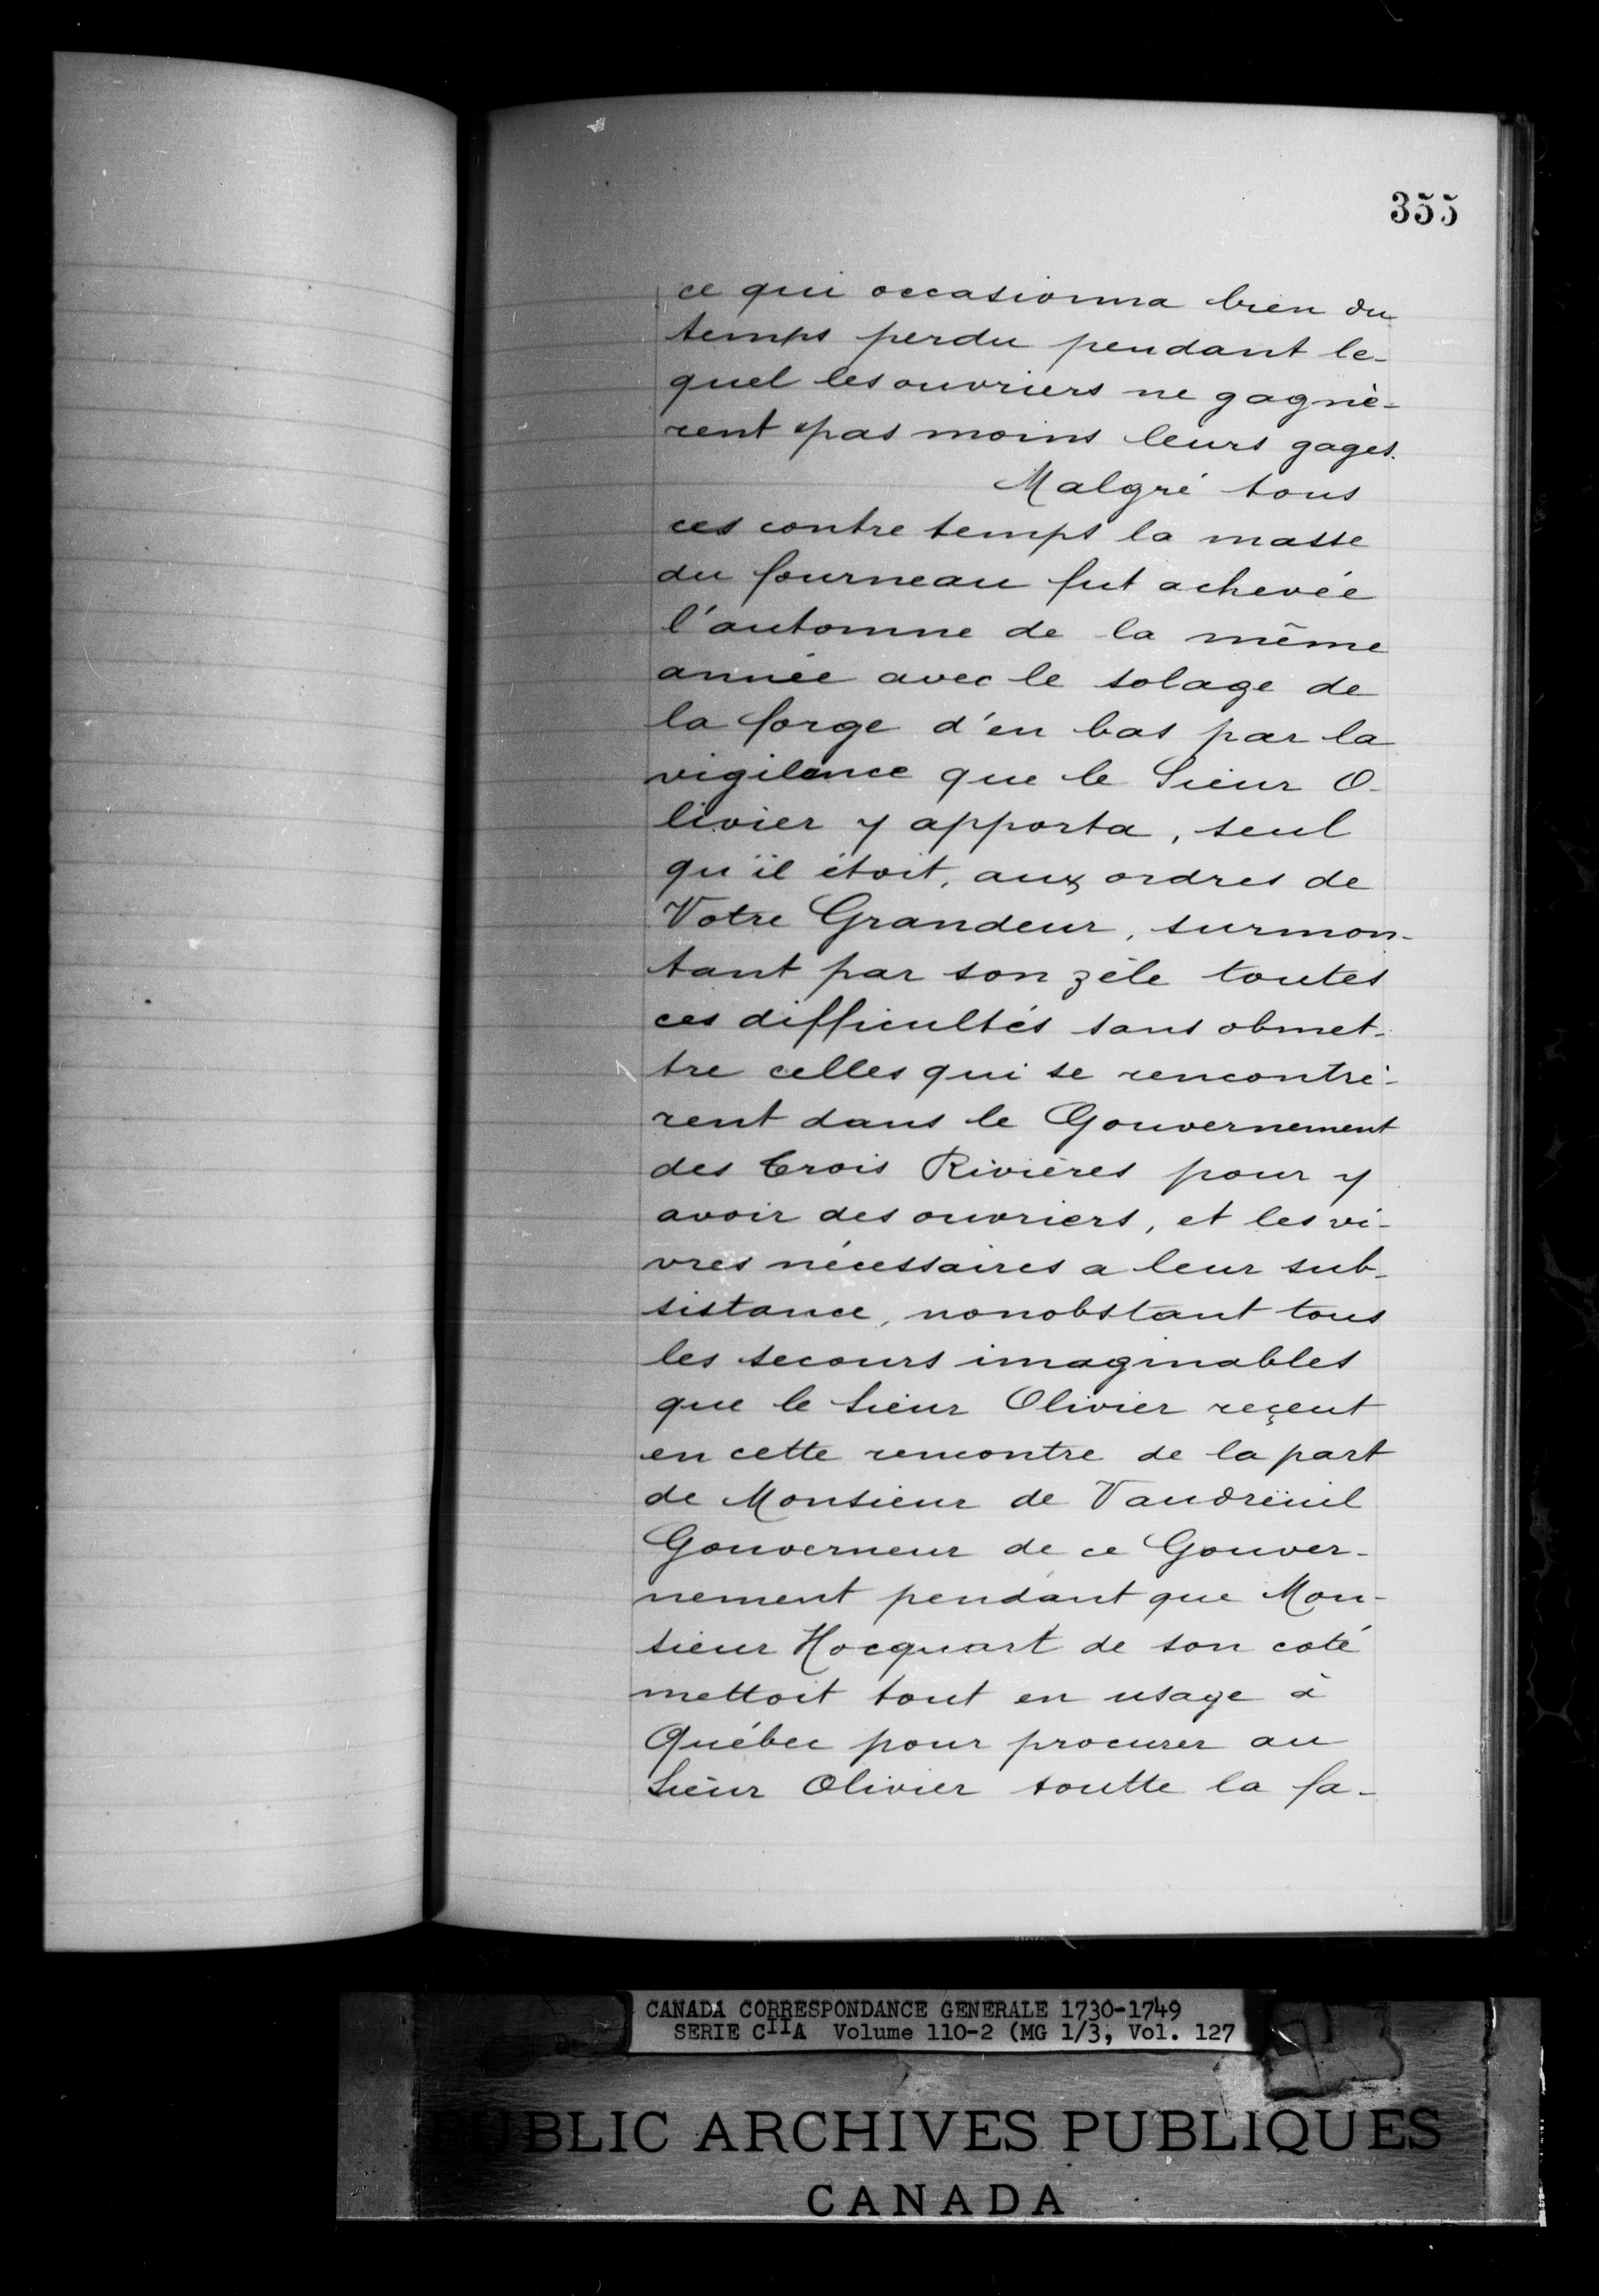 355
ce qui occasionna bien du
temps perdu pendant le-
quel les ouvriers ne gagnè-
rent pas moins leurs gages.
Malgré tous
ces contre temps la masse
du fourneau fut achevée
l'automne de la même
année avec le solage de
la forge d'en bas par la
vigilance que le Sieur O-
livier y apporta, seul
qu'il étoit, aux ordres de
Votre Grandeur, surmon-
tant par son zèle toutes
ces difficultés sans obmet-
tre celles qui se rencontrè-
rent dans le Gouvernement
des trois Rivières pour y
avoir des ouvriers, et les vi-
vres nécessaires a leur sub-
sistance, nonobstant tous
les secours imaginables
que le Sieur Olivier reçeut
en cette rencontre de la part
de Monsieur de Vaudreüil
Gouverneur de ce Gouver-
nement pendant que Mon-
sieur Hocquart de son coté
mettoit tout en usage à
Québec pour procurer au
Sieur Olivier toutte la fa-
CANADA CORRESPONDANCE GENERALE 1730-1749
SERIE CIIA Volume 110-2 (MG 1/3, Vol. 127
PUBLIC ARCHIVES PUBLIQUES
CANADA